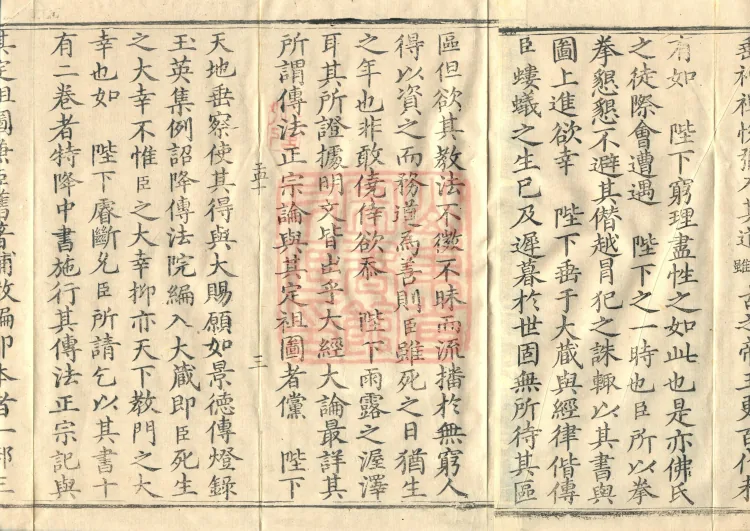 有如　陛下窮理盡性之如此也是亦佛氏
之徒際會遭遇　陛下之一時也臣所以拳
拳懇懇不避其僭越冒犯之誅輒以其書與
圖上進欲幸　陛下垂于大藏與經律偕傳
臣螻蟻之生已及遲暮於世固無所待其區
區但欲其教法不微不昧而流播於無窮人
得以資之而務道為善則臣雖死之日猶生
之年也非敢僥倖欲忝　陛下雨露之渥澤
耳其所證據明文皆出乎大經大論最詳其
所謂傳法正宗論與其定祖圖者儻　陛下
三
天地垂察使其得與大賜願如景德傳燈錄
玉英集例詔降傳法院編入大藏即臣死生
之大幸不惟臣之大幸抑亦天下教門之大
幸也如　陛下睿斷允臣所請乞以其書十
有二卷者特降中書施行其傳法正宗記與
其定祖圖